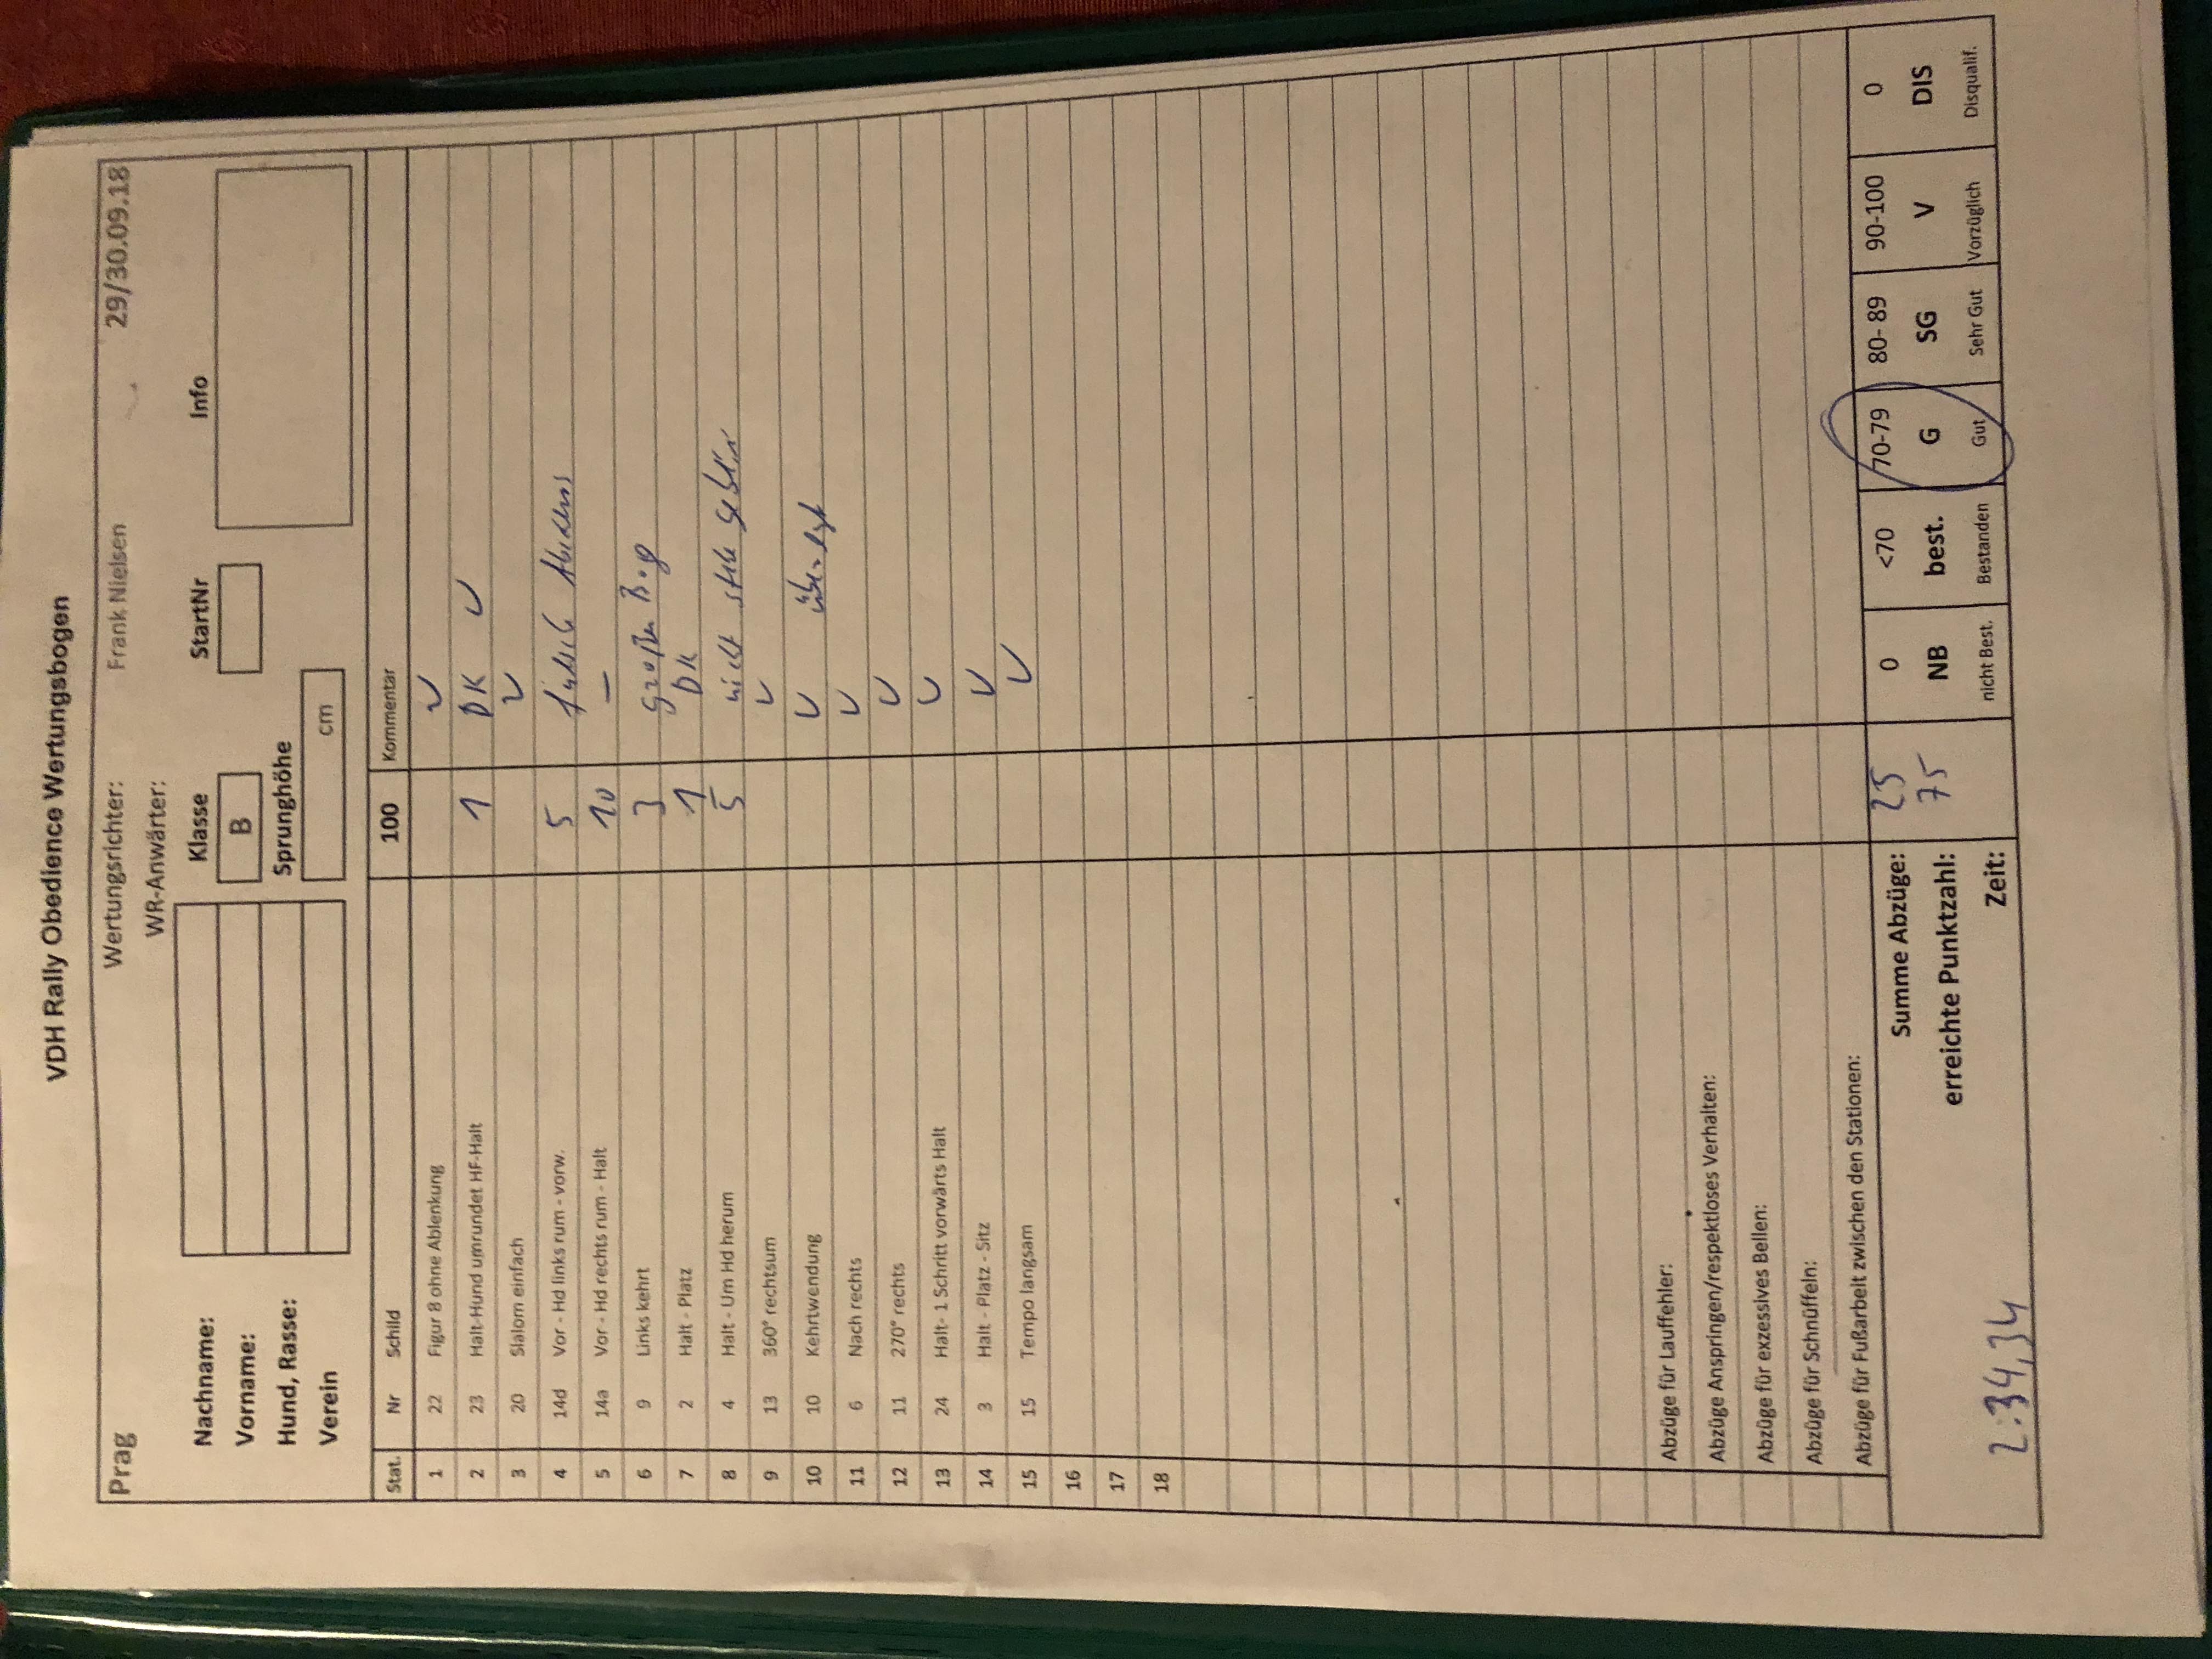 VDH Rally Obedience Wertungsbogen
Prag Wertungsrichter: Frank Nielsen 29/30.09.18
WR-Anwärter:
Nachname: Klasse StartNr Info
Vorname: B
Hund, Rasse: Sprunghöhe
Verein cm
Stat. Nr Schild 100 Kommentar
1 22 Figur 8 ohne Ablenkung
2 23 Halt-Hund umrundet HF-Halt 1 DK
3 20 Slalom einfach
4 14d Vor - Hd links rum - vorw. 5 falsch
5 14a Vor - Hd rechts rum - Halt 10 –
6 9 Links kehrt 3 großer Bog
7 2 Halt - Platz 1 DK
8 4 Halt - Um Hd herum 5 nicht
9 13 360° rechtsum
10 10 Kehrtwendung
11 6 Nach rechts
12 11 270° rechts
13 24 Halt- 1 Schritt vorwärts Halt
14 3 Halt - Platz - Sitz
15 15 Tempo langsam
16
17
18
Abzüge für Lauffehler:
Abzüge Anspringen/respektloses Verhalten:
Abzüge für exzessives Bellen:
Abzüge für Schnüffeln:
Abzüge für Fußarbeit zwischen den Stationen:
Summe Abzüge: 25 0 <70 70-79 80- 89 90-100 0
erreichte Punktzahl: 75 NB best. G SG V DIS
Zeit: nicht Best. Bestanden Gut Sehr Gut Vorzüglich Disqualif.
2:34,34